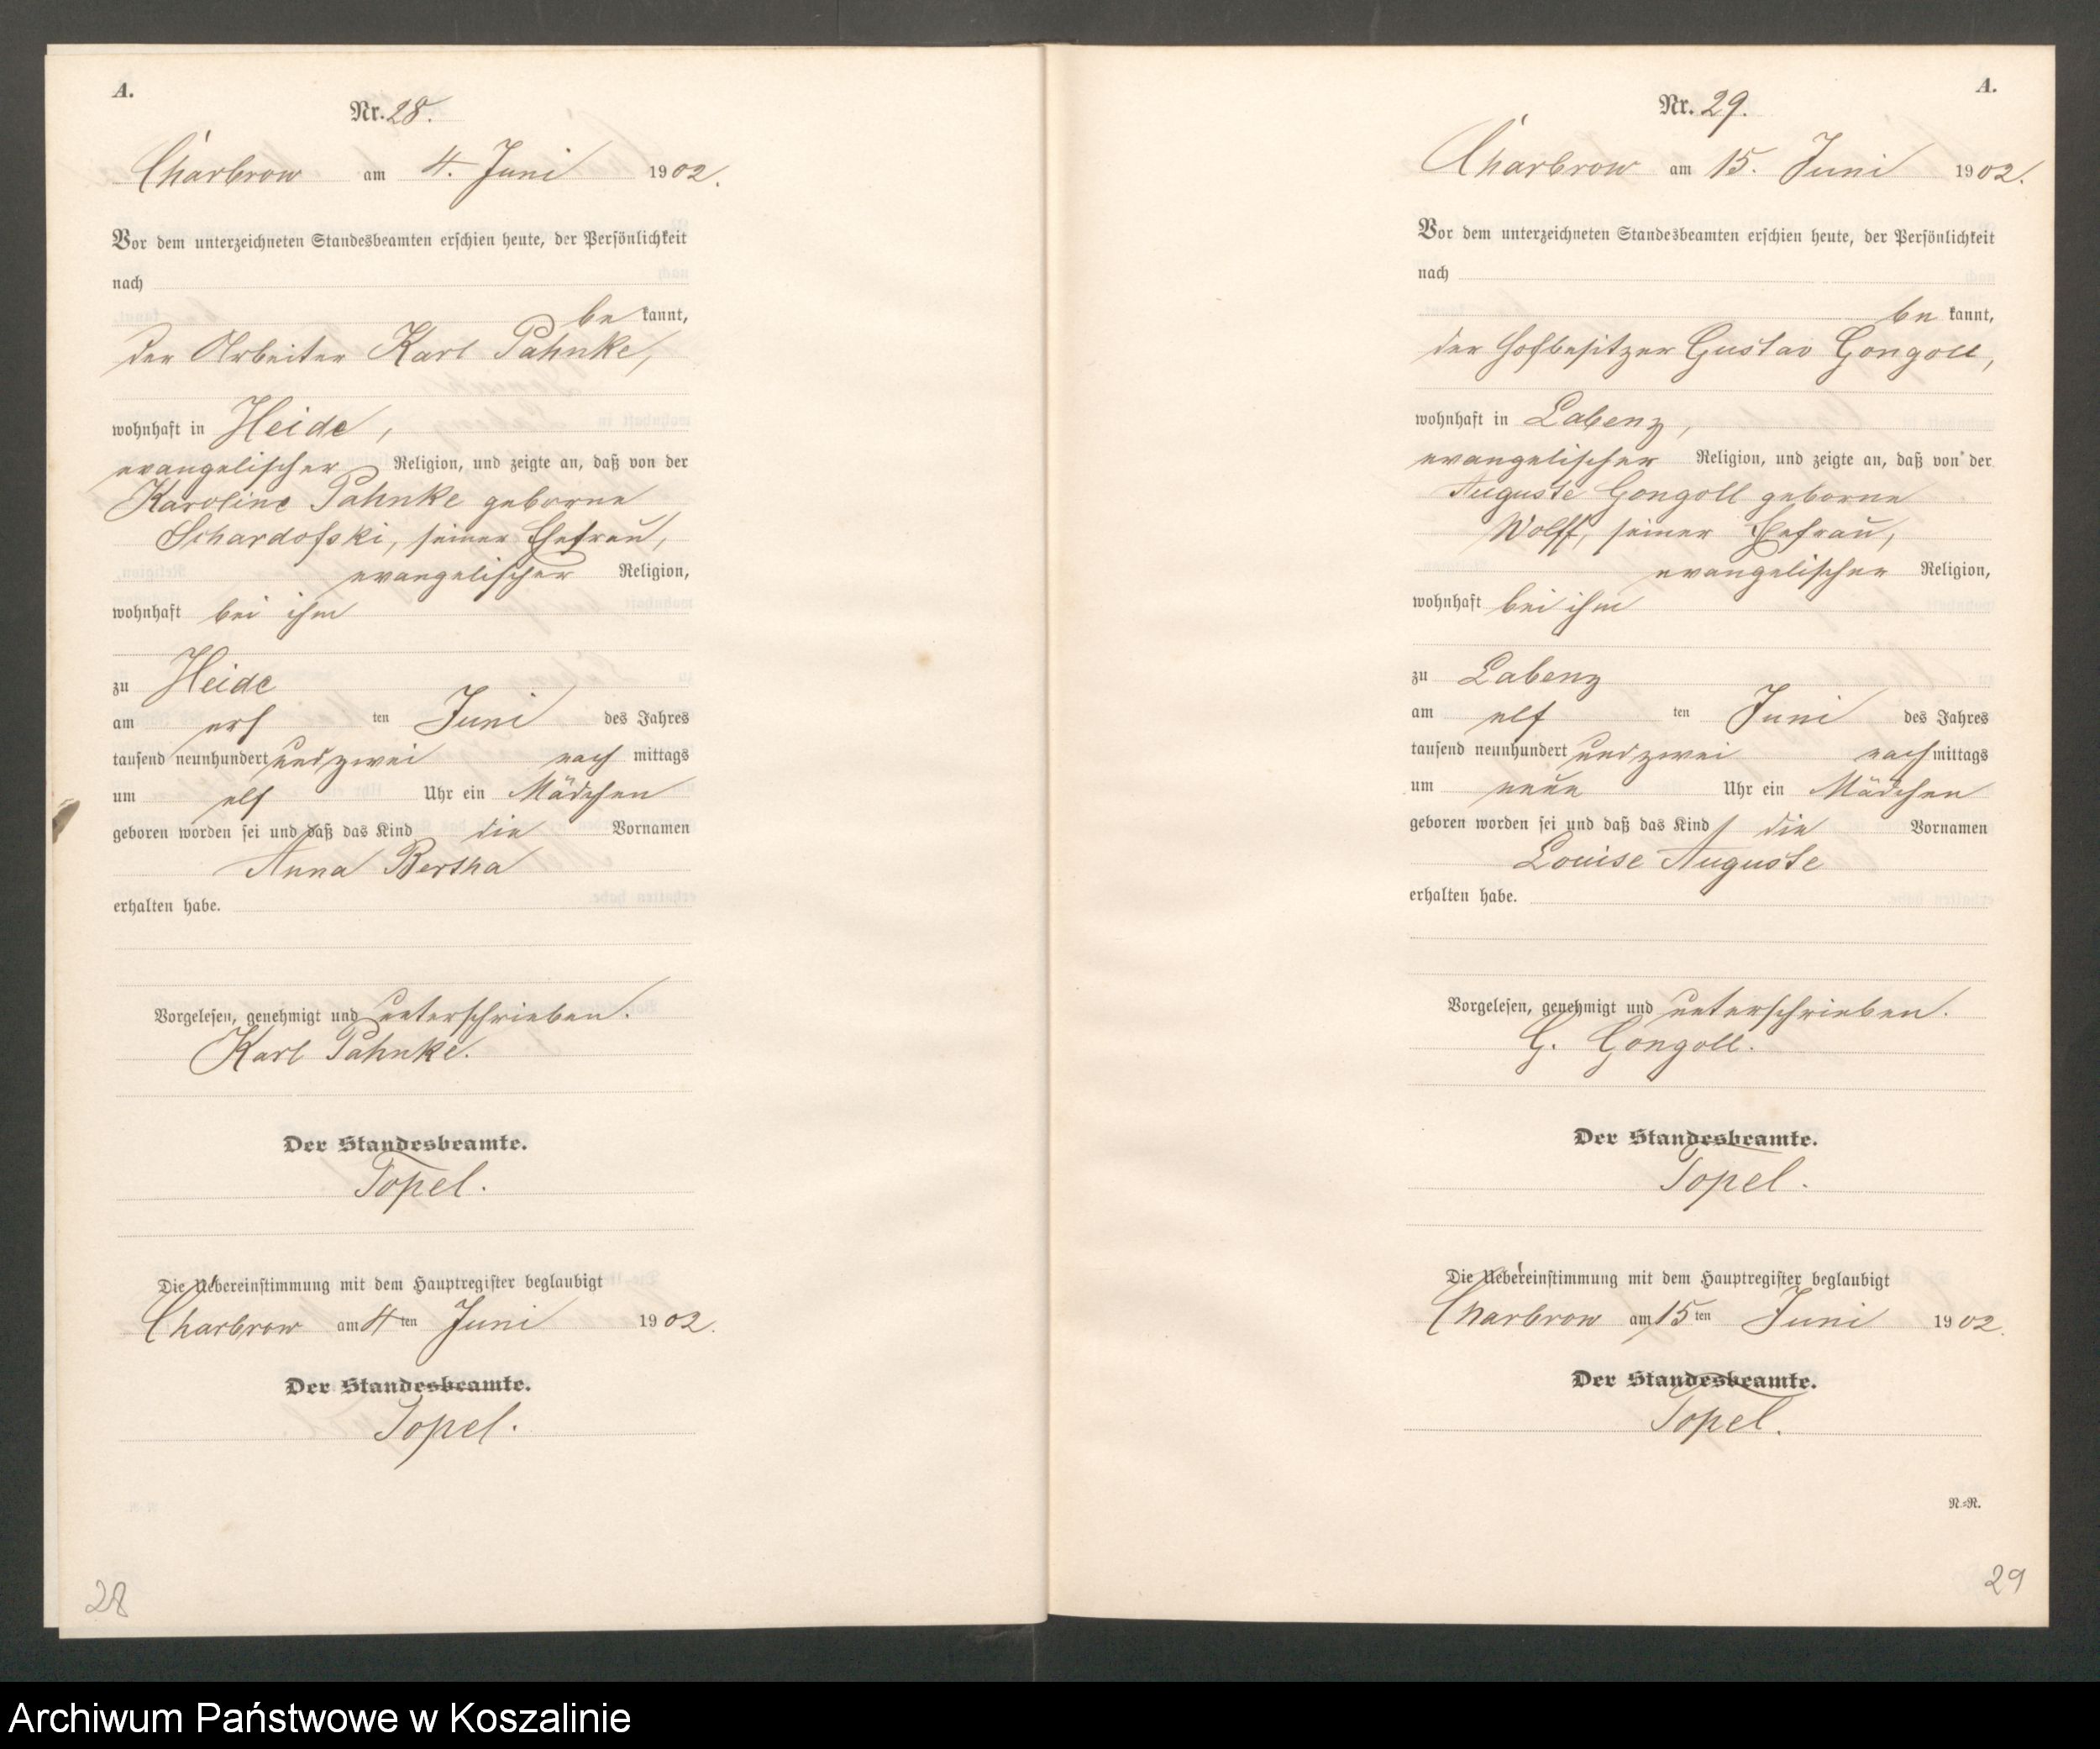 A.
Nr. 28.
Charbrow am 4. Juni 1902.
Vor dem unterzeichneten Standesbeamten erschien heute, der Persönlichkeit
nach
be kannt,
der Arbeiter Karl Pahnke,
wohnhaft in Heide,
evangelischer Religion, und zeigte an, daß von der
Karoline Pahnke geborne
Schardofski, seiner Ehefrau,
evangelischer Religion,
wohnhaft bei ihm
zu Heide
am ers ten Juni des Jahres
tausend neunhundert und zwei nach mittags
um elf Uhr ein Mädchen
geboren worden sei und daß das Kind die Vornamen
Anna Bertha
erhalten habe.
Vorgelesen, genehmigt und unterschrieben.
Karl Pahnke.
Der Standesbeamte.
Topel.
Die Uebereinstimmung mit dem Hauptregister beglaubigt
Charbrow am 4ten Juni 1902.
Der Standesbeamte.
Topel.
28
A.
Nr. 29.
Charbrow am 15. Juni 1902.
Vor dem unterzeichneten Standesbeamten erschien heute, der Persönlichkeit
nach
be kannt,
der Hofbesitzer Gustav Gongoll,
wohnhaft in Labenz,
evangelischer Religion, und zeigte an, daß von der
Auguste Gongoll geborne
Wolff, seiner Ehefrau,
evangelischer Religion,
wohnhaft bei ihm
zu Labenz
am elf ten Juni des Jahres
tausend neunhundert und zwei nach mittags
um neun Uhr ein Mädchen
geboren worden sei und daß das Kind die Vornamen
Louise Auguste
erhalten habe.
Vorgelesen, genehmigt und unterschrieben.
G. Gongoll.
Der Standesbeamte.
Topel.
Die Uebereinstimmung mit dem Hauptregister beglaubigt
Charbrow am 15ten Juni 1902.
Der Standesbeamte.
Topel.
N=N.
29
Archiwum Państwowe w Koszalinie